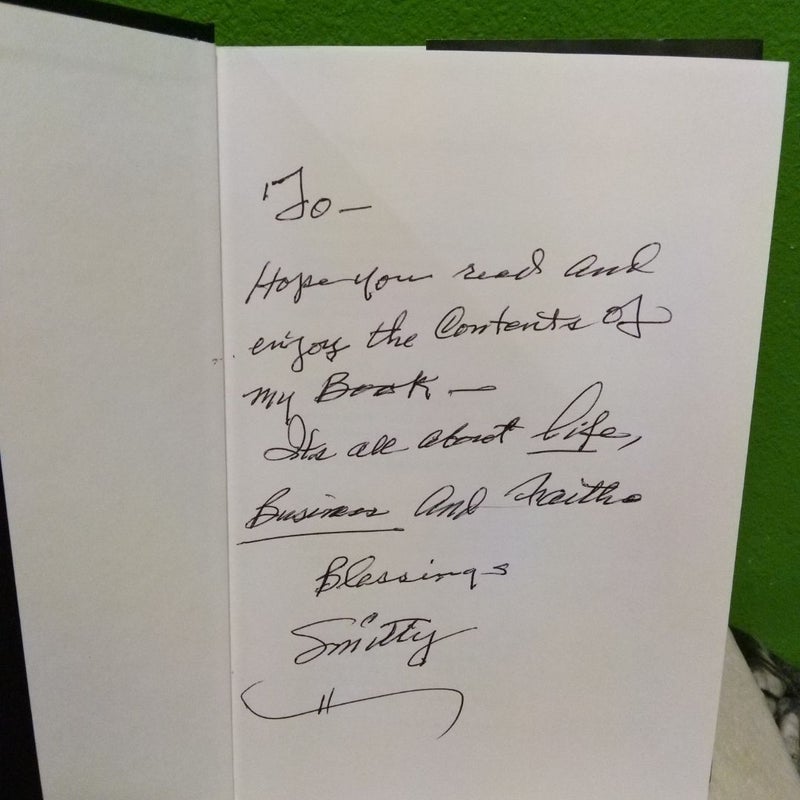 To —
Hope you read and
enjoy the Contents of
my Book —
It's all about life,
Business And Faith.
Blessings
Smitty